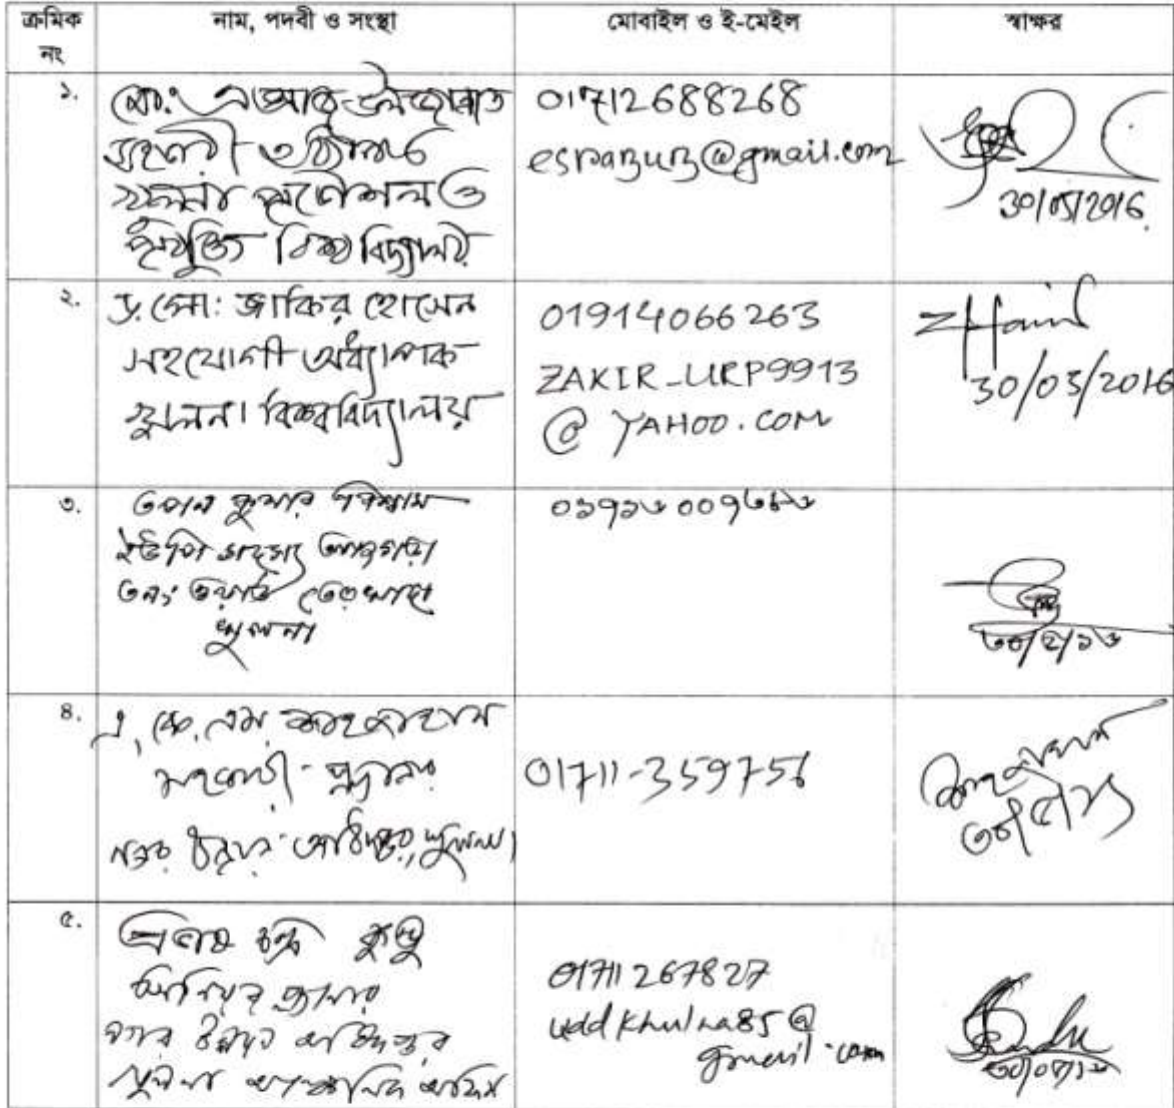 ক্রমিক নং
নাম, পদবী ও সংস্থা
মোবাইল ও ই-মেইল
স্বাক্ষর
১.
মো:
সহকারী
খুলনা প্রকৌশল ও
প্রযুক্তি বিশ্ববিদ্যালয়
01712688268
@gmail.com
30/05/2016
২.
ড. মো: জাকির হোসেন
সহযোগী অধ্যাপক
খুলনা বিশ্ববিদ্যালয়
01914066263
ZAKIR_URP9913
@ YAHOO.COM
30/05/2016
৩.
কুমার বিশ্বাস
৩নং ওয়ার্ড তেরখাদা
খুলনা
৩০/৫/১৬
৪.
এ, কে, এম,
সহকারী - প্ল্যানার
নগর উন্নয়ন অধিদপ্তর, খুলনা।
01711-359756
৩০/৫/১৬
৫.
চন্দ্র কুন্ডু
সিনিয়র প্ল্যানার
নগর উন্নয়ন অধিদপ্তর
খুলনা আঞ্চলিক অফিস
01711267827
uddkhulna85@
gmail.com
৩০/০৫/১৬